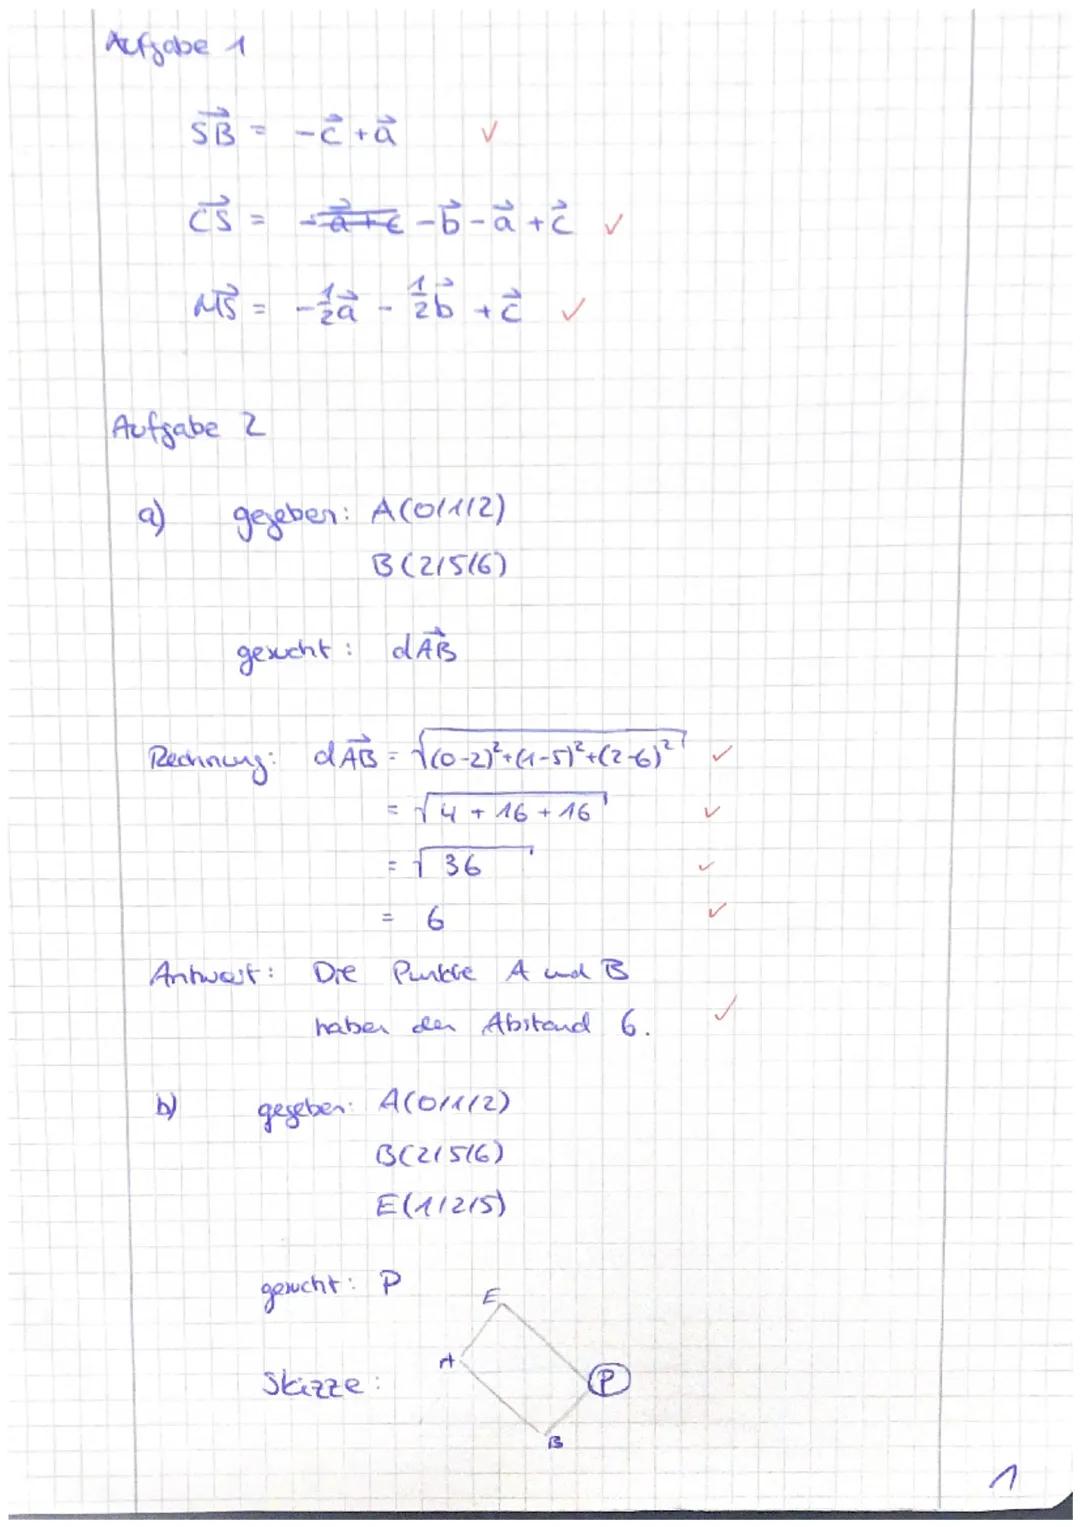 Aufgabe 1
S⃗B⃗ = -c⃗ + a⃗ ✓
C⃗S⃗ = -b⃗ - a⃗ + c⃗ ✓
M⃗S⃗ = -½a⃗ - ½b⃗ + c⃗ ✓
Aufgabe 2
a) gegeben: A(0/1/2)
B(2/5/6)
gesucht: dA⃗B⃗
Rechnung: dA⃗B⃗ = √(0-2)²+(1-5)²+(2-6)² ✓
= √4 + 16 + 16 ✓
= √36 ✓
= 6 ✓
Antwort: Die Punkte A und B
haben den Abstand 6. ✓
b) gegeben: A(0/1/2)
B(2/5/6)
E(1/2/5)
gesucht: P
E
A
Skizze: P
B
1